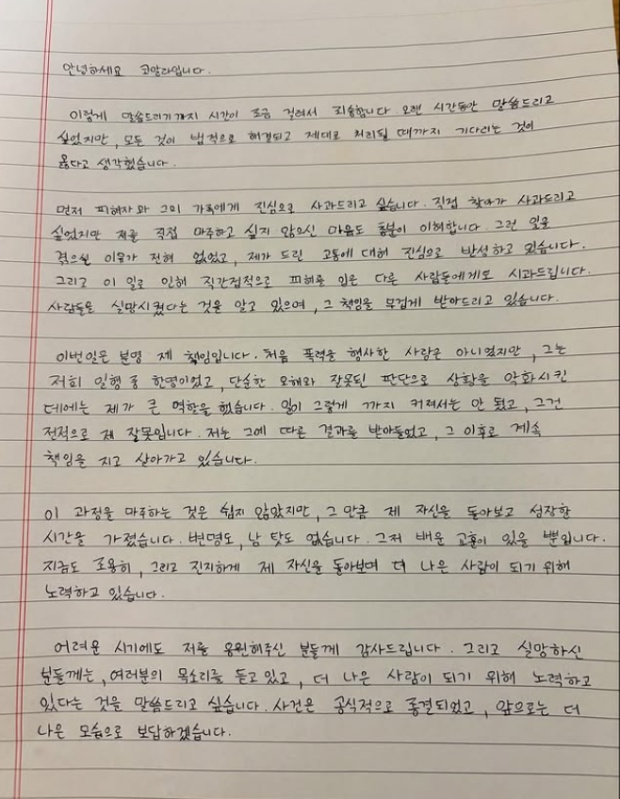 안녕하세요 코알라입니다.
이렇게 말씀드리기까지 시간이 조금 걸려서 죄송합니다 오랜 시간동안 말씀드리고
싶었지만, 모든 것이 법적으로 해결되고 제대로 처리될 때까지 기다리는 것이
옳다고 생각했습니다.
먼저 피해자와 그의 가족에게 진심으로 사과드리고 싶습니다. 직접 찾아가 사과드리고
싶었지만 저를 직접 마주하고 싶지 않으신 마음도 충분이 이해합니다. 그런 일을
겪으실 이유가 전혀 없었고, 제가 드린 고통에 대해 진심으로 반성하고 있습니다.
그리고 이 일로 인해 직간접적으로 피해를 입은 다른 사람들에게도 사과드립니다.
사람들을 실망시켰다는 것을 알고 있으며, 그 책임을 무겁게 받아드리고 있습니다.
이번일은 분명 제 책임입니다. 처음 폭력을 행사한 사람은 아니였지만, 그는
저희 일행 중 한명이었고, 단순한 오해와 잘못된 판단으로 상황을 악화시킨
데에는 제가 큰 역할을 했습니다. 일이 그렇게 까지 커져서는 안 됐고, 그건
전적으로 제 잘못입니다. 저는 그에 따른 결과를 받아들었고, 그 이후로 계속
책임을 지고 살아가고 있습니다.
이 과정을 마주하는 것은 쉽지 않았지만, 그 만큼 제 자신을 돌아보고 성장할
시간을 가졌습니다. 변명도, 남 탓도 없습니다. 그저 배운 교훈이 있을 뿐입니다.
지금도 조용히, 그리고 진지하게 제 자신을 돌아보며 더 나은 사람이 되기 위해
노력하고 있습니다.
어려운 시기에도 저를 응원해주신 분들께 감사드립니다. 그리고 실망하신
분들께는, 여러분의 목소리를 듣고 있고, 더 나은 사람이 되기 위해 노력하고
있다는 것을 말씀드리고 싶습니다. 사건은 공식적으로 종결되었고, 앞으로는 더
나은 모습으로 보답하겠습니다.